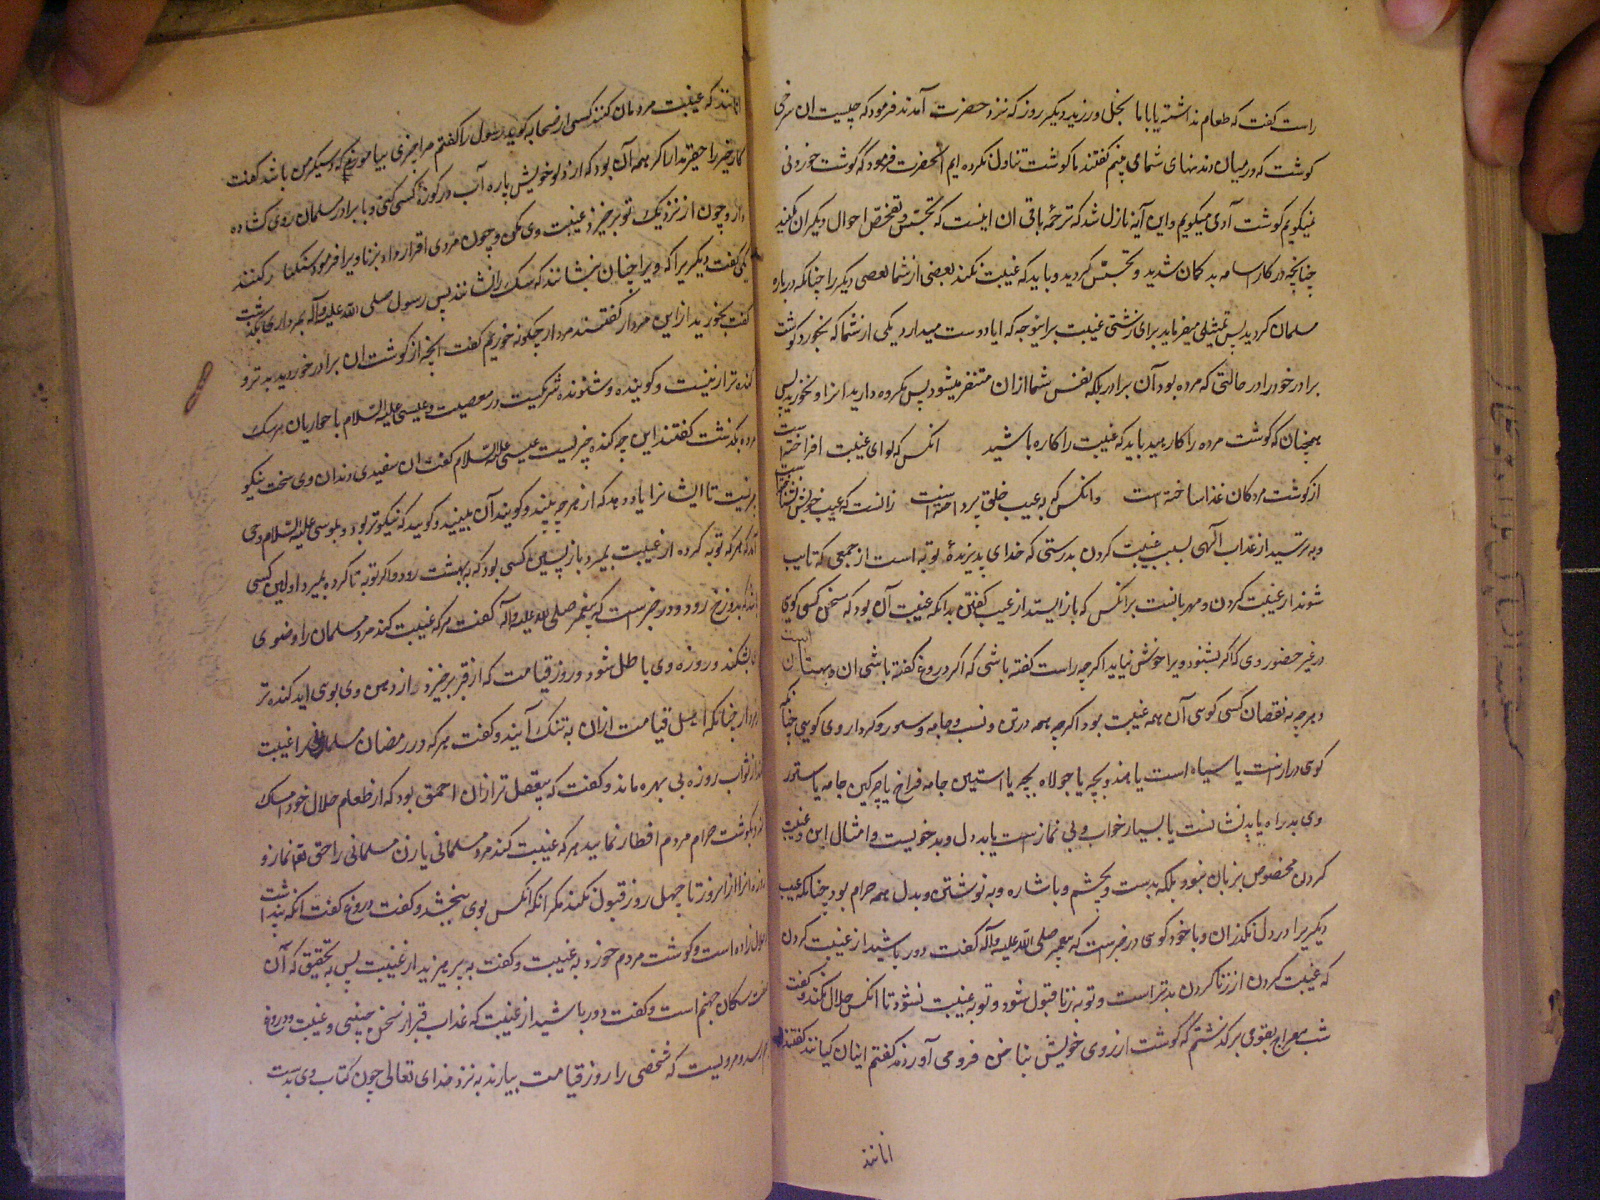 راست گفت که طعام نداشته یا با ما بخل ورزید و دیگر روز که نزد حضرت آمدند فرمود که چیست ان سرخی
گوشت که در میان دندنهای شما می بینم گفتند ما گوشت تناول نکرده ایم انحضرت فرمود که گوشت خوردنی
نمیگویم گوشت آدمی میگویم و این آیه نازل شد که ترجمهٔ باقی ان اینست که تجسّس و تفحّص احوال دیگران مکنید
چنانچه در کار اسامه بد گمان شدید و تجسّس کردید و باید که غیبت نکند بعضی از شما بعضی دیگر را چنانکه درباره
مسلمان کردید پس تمثیلی میفرماید برای زشتی غیبت براینوجه که ایا دوست میدارد یکی از شما که بخورد گوشت
برادر خود را در حالتی که مرده بود آن برادر بلکه نفس شما ازان متنفر میشود پس مکروه دارید انرا و نخورید پس
همچنان که گوشت مرده را کارهید باید که غیبت را کاره باشید انکس که لوای غیبت افراخته است
از گوشت مردگان غذا ساخته است وانکس که به عیب خلق پرداخته است زانست که عیب خویش نشناخته است
و بترسید از عذاب آلهی بسبب غیبت کردن بدرستی که خدای پذیرندهٔ توبه است از جمعی که تایب
شوند از غیبت کردن و مهربانست برانکس که باز ایستد از عیب گفتن بدانکه غیبت آن بود که سخن کسی کوی
در غیر حضور وی که اگر بشنود ویرا خوش نیاید اگرچه راست گفته باشی که اگر دروغ گفته باشی ان بهتان است
و هرچه به نقصان کسی کوسی آن همه غیبت بود اگرچه همه در تن و نسب و جامه و ستور و کردار وی کویی چنانکه
کوی درازست یا سیاه است یا هندو بچه یا جولاه بچه یا استین جامه فراخ یا چرکین جامه یا ستور
وی بد راه یا بد نشانست یا بسیار خواب و بی نمازست یا بد دل و بدخویست و امثال این و غیبت
کردن مخصوص بزبان نبود بلکه بدست و بچشم و باشاره و به نوشتن و بدل همه حرام بود چنانکه عیب
دیگریرا در دل بگذران و با خود کوسی در خبرست که پیغمبر صلی الله علیه وآله گفت دور باشید از غیبت کردن
که غیبت کردن از زنا کردن بدتر است و توبه زنا قبول شود و توبه غیبت نشود تا انکس حلال نکند و گفت
شب معراج بقومی برگذشتم که گوشت از روی خویش بناخن فرو می آوردند گفتم اینان کیانند گفتند
انانند
انانند که غیبت مردمان کنند کسی از صحابه گوید رسول را گفتم مرا چیزی بیاموز که دستگیر من باشد گفت
کار خیر را حقیر مدار اگر همه آن بود که از دلو خویش پاره آب در کوزه کسی کنی و با برادر مسلمان روی گشاده
دار و چون از نزدیک تو برخیزد غیبت وی مکن و چون مردی اقرار داد بزنا ویرا فرمود سنگسار کنند
یکی گفت دیگریرا که ویرا چنان بنشانند که سگ را نشانند پس رسول صلی الله علیه وآله بمرداری بگذشت
گفت بخورید ازین مردار گفتند مردار چگونه خوریم گفت انچه از گوشت ان برادر خوردید بتر و
گنده تر ازینست و گوینده و شنونده شریکست در معصیت و عیسی علیه السلام با حواریان بر سگ
مرده بگذشت گفتند این چه گنده چیزیست عیسی علیه السلام گفت ان سفیدی دندان وی سخت نیکو
چیزیست تا ایشانرا یاد دهد که از هر چه بینند و گویند آن ببینید و گویید که نیکوتر بود و بموسی علیه السلام وحی
آمد که هر که توبه کرده از غیبت بمیرد باز پسین کسی بود که به بهشت رود و اگر توبه نا کرده بمیرد اولین کسی
باشد که بدوزخ رود و در خبرست که پیغمبر صلی الله علیه وآله گفت هر که غیبت کند مرد مسلمان را وضوی
وی بشکند و روزه وی باطل شود و روز قیامت که از قبر برخیزد از دهن وی بوی اید گنده تر
از مردار چنانکه اهل قیامت ازان به تنگ آیند و گفت هر که در رمضان مسلمانی را غیبت
کند از ثواب روزه بی بهره ماند و گفت که بیعقل تر ازان احمق بود که از طعام حلال خود امساک
نماید و بگوشت حرام مردم افطار نماید هر که غیبت کند مرد مسلمانی یا زن مسلمانی را حق تعالی نماز و
روزه انرا از امروز تا چهل روز قبول نکند مگر انکه انکس بوی ببخشد و گفت دروغ گفت انکه پنداشت
حلال زاده است و گوشت مردم خورد به غیبت و گفت به پرهیزید از غیبت پس به تحقیق که آن
خورش سگان جهنم است و گفت دور باشید از غیبت که عذاب قبر از سخن چینی و غیبت و دروغ
مرویست که شخصی را روز قیامت بیارند به نزد خدای تعالی چون کتاب وی بدست